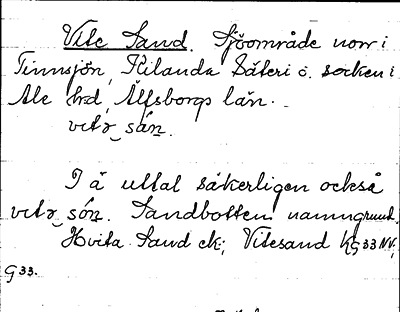 Vite Sand. Sjöområde norr i
Tinnsjön, Kilanda Säteri o. socken i
Ale hrd, Älfsborgs län.
vitə sán.
I ä uttal säkerligen också
vitə són. Sandbotten namngrund.
Hvita Sand ek; Vitesand kG33NV;
G33.